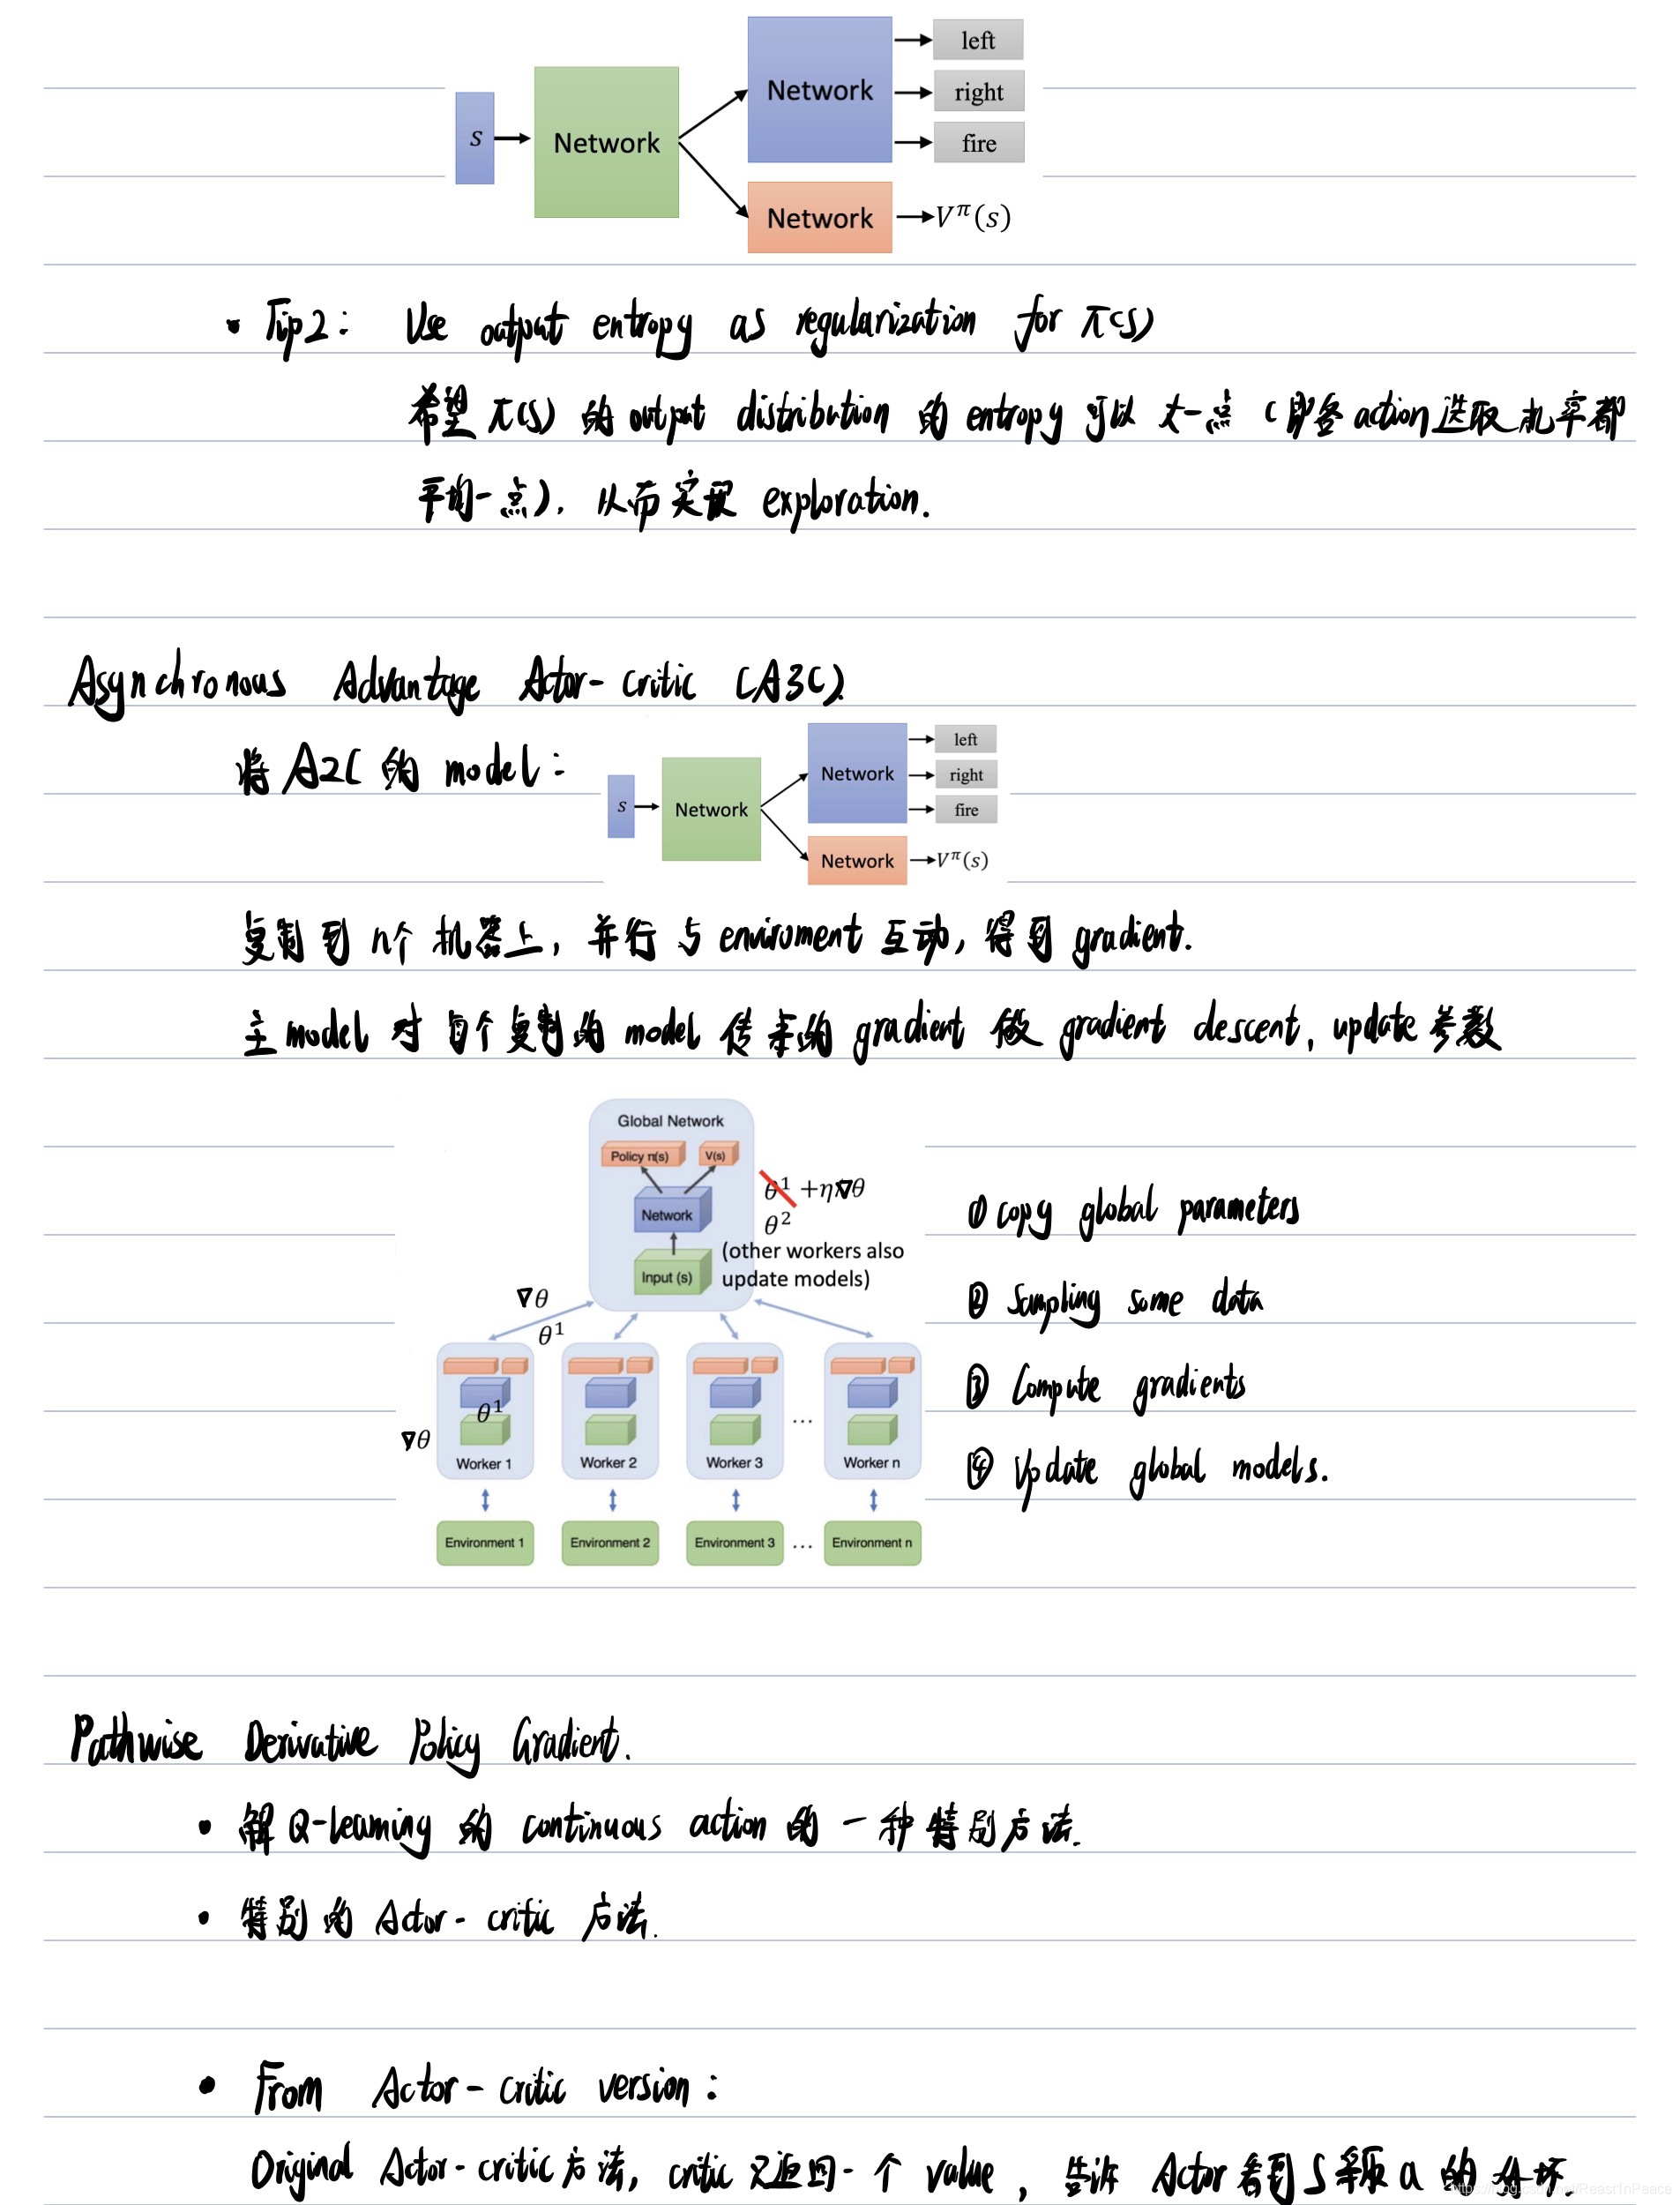 left
Network
right
S
Network
fire
Network
V^π(s)
• Tip2: Use output entropy as regularization for π(s)
希望 π(s) 的 output distribution 的 entropy 可以 大一点 (即各action选取机率都
平均一点), 从而实现 exploration.
Asynchronous Advantage Actor-critic (A3C)
将 A2C 的 model:
left
Network
right
S
Network
fire
Network
V^π(s)
复制到 n个 机器上, 并行 与 enviroment 互动, 得到 gradient.
主 model 对 每个复制的 model 传来的 gradient 做 gradient descent, update 参数
Global Network
Policy π(s)
V(s)
θ¹ +η∇θ
Network
θ²
(other workers also
update models)
Input (s)
∇θ
θ¹
θ¹
∇θ
...
Worker 1
Worker 2
Worker 3
Worker n
Environment 1
Environment 2
Environment 3
...
Environment n
① copy global parameters
② Sampling some data
③ Compute gradients
④ Update global models.
Pathwise Derivative Policy Gradient.
• 解 Q-learning 的 continuous action 的 一种 特别方法.
• 特别的 Actor-critic 方法.
• From Actor-critic version:
Original Actor-critic方法, critic 只返回一个 value, 告诉 Actor 看到 S 采取 a 的 好坏.